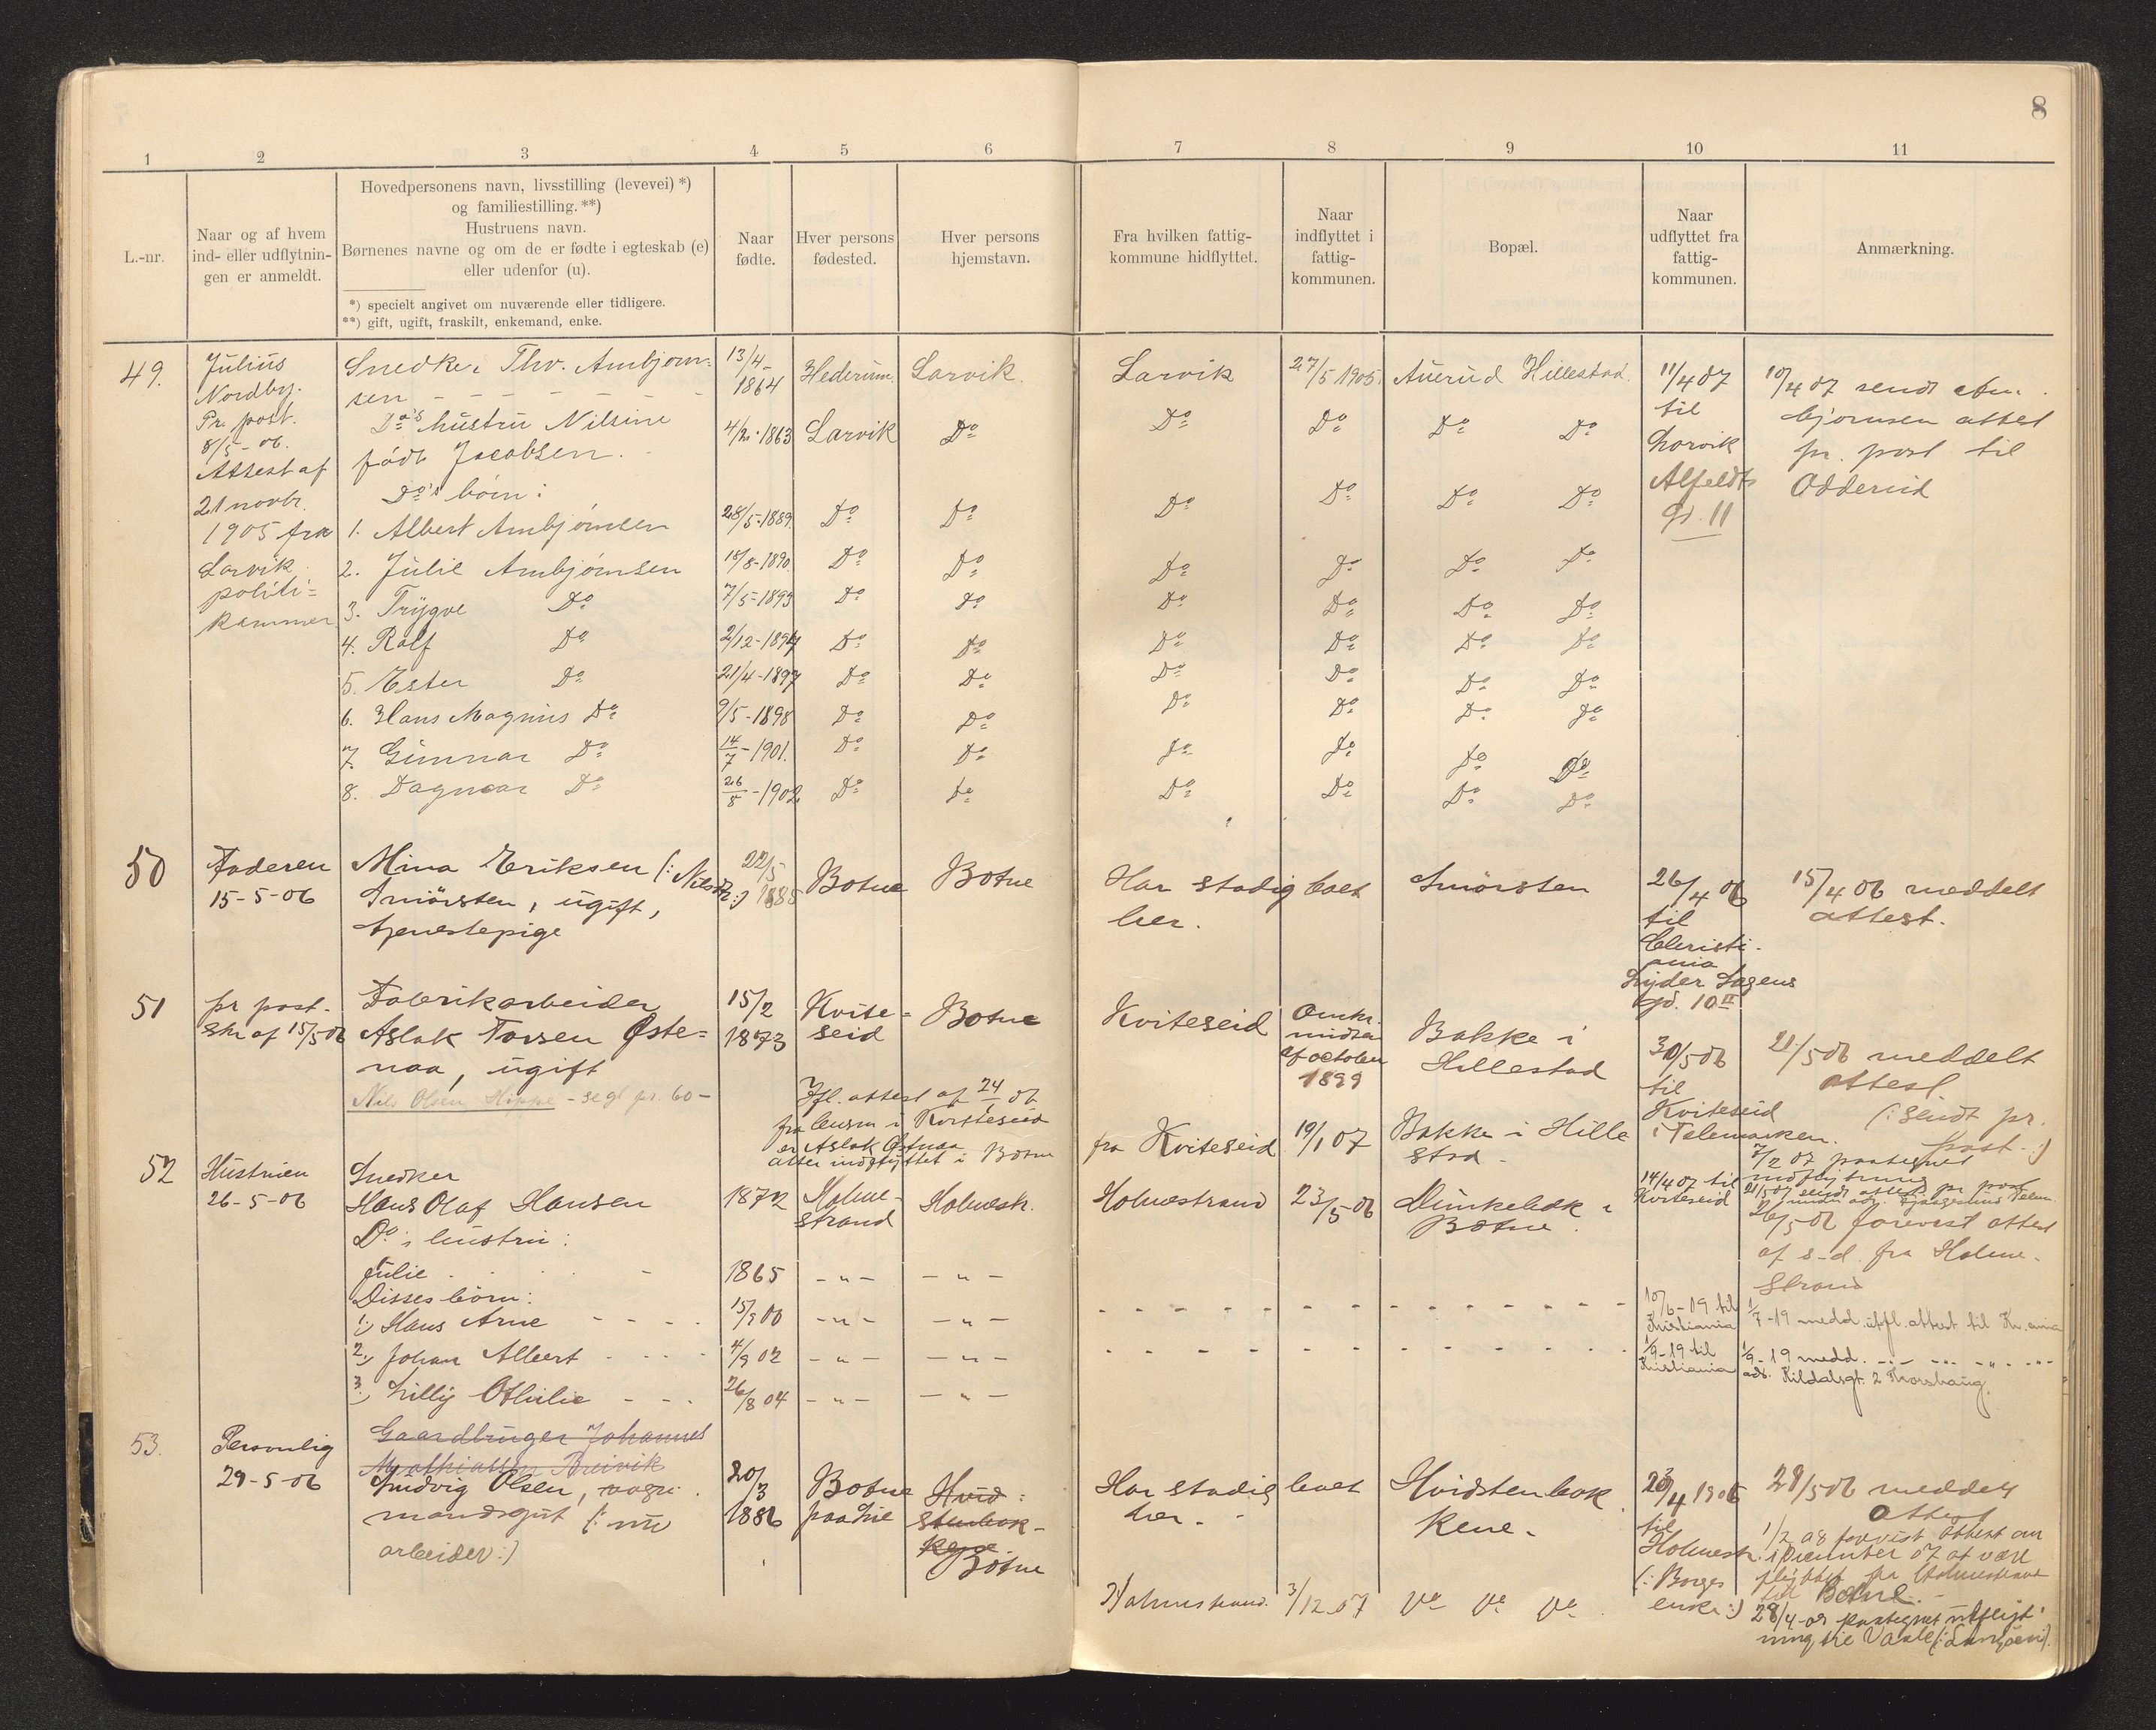 8
1 2 3 4 5 6 7 8 9 10 11
L.-nr.
Naar og af hvem
ind- eller udflytnin-
gen er anmeldt.
Hovedpersonens navn, livsstilling (levevei) *)
og familiestilling. **)
Hustruens navn.
Børnenes navne og om de er fødte i egteskab (e)
eller udenfor (u).
*) specielt angivet om nuværende eller tidligere.
**) gift, ugift, fraskilt, enkemand, enke.
Naar
fødte.
Hver persons
fødested.
Hver persons
hjemstavn.
Fra hvilken fattig-
kommune hidflyttet.
Naar
indflyttet i
fattig-
kommunen.
Bopæl.
Naar
udflyttet fra
fattig-
kommunen.
Anmærkning.
49.
Julius
Nordby.
Pr. post.
8/5-06.
Attest af
21 novbr.
1905 fra
Larvik
politi=
kammer
Snedker Thv. Ambjørn=
sen - - - - - -
13/4-
1864
Hederum.
Larvik.
Larvik
27/5 1905.
Auerud Hillestad.
11/4 07
til
Larvik
Alfeldts
gd. 11
10/4 07 sendt Am-
bjørnsen attest
pr. post til
Odderud
Do's hustru Nilsine
født Jacobsen.
1863 Larvik Do Do Do Do Do
Do's børn:
1. Albert Ambjørnsen 28/5-1889. Do Do Do Do Do Do
2. Julie Ambjørnsen 18/8-1890. Do Do Do Do Do Do
3. Trygve Do 7/5-1893 Do Do Do Do Do Do
4. Ralf Do 2/12-1894 Do Do Do Do Do Do
5. Ester Do 21/4-1897 Do Do Do Do Do Do
6. Hans Magnus Do 9/5-1898 Do Do Do Do Do Do
7. Gunnar Do 14/7-1901. Do Do Do Do Do Do
8. Dagmar Do 26/8-1902 Do Do Do Do Do Do
50
Faderen
15-5-06
Mina Eriksen (: Nilsdtr. :)
Smørsten, ugift,
tjenestepige
22/5
1885
Botne
Botne
Har stadig boet
her.
Smørsten
26/4 06
til
Christi-
ania
Lyder Sagens
gd. 10 II
15/4 06 meddelt
attest.
51
pr post.
skr af 15/5 06
Fabrikarbeider
Aslak Torsen Øste=
naa, ugift
Nils Olsen Hippe - se gl pr. 60-
15/2
1873
Kvite=
seid
Botne
Kviteseid
Omkr.
midten
af october
1899
Bakke i
Hillestad
30/5 06
til
Kviteseid
i Telemarken.
21/5 06 meddelt
attest
(: sendt pr.
post. :)
Ifl. attest af 24/ 06
fra lensm i Kviteseid
er Aslak Østnaa
atter indflyttet i Botne
fra Kviteseid
19/1 07
Bakke i Hille
stad -
14/4 07 til
Kviteseid
7/2 07 paategnet
indflytning
21/5 07 sendt attest pr post
52
Hustruen
26-5-06
Snedker
Hans Olaf Hansen
Do's hustru:
Julie
Disses børn:
1;) Hans Arne
2;) Johan Albert
3;) Lilly Othilie
1872
1865
15/9 00
4/9 02
26/8 04
Holme-
strand
- " -
- " -
- " -
- " -
Holmestr.
- " -
- " -
- " -
- " -
Holmestrand
23/5 06
Dunkebæk i
Botne.
26/5 06 forevist attest
af s-d. fra Holme-
strand
10/6-19 til
Kristiania
1/7-19 medd. utfl. attest til Kr.ania
1/9-19 til
Kristiania
1/9-19 medd. -"- -"- -"- -"-
adr. Kildalsgt. 2 Thorshaug.
53.
Personlig
29-5-06
Gaardbruger Johannes
Mathiassen Breivik
Ludvig Olsen,
mandsgut (: nu
arbeider :)
20/3
1886
Botne
Hvid=
stenbak-
kene
Botne
Har stadig boet
her. -
Hvidstenbak
kene-
20/4 1906
til
Holmestr.
(: Borges
enke :)
29/5 06 meddelt
attest
1/2 08 forevist attest om
i December 07 at være
flyttet fra Holmestrand
til Botne.
28/4-08 paategnet utflyt
ning til Vaale
Holmestrand.
3/12.07
Do Do Do